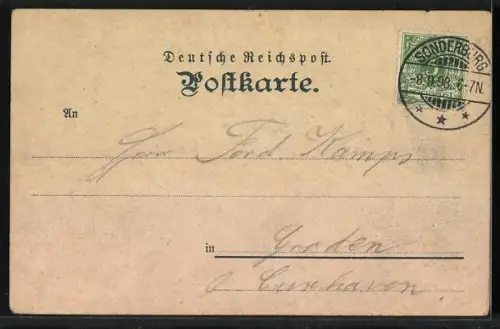 Deutsche Reichspost.
Postkarte.
SONDERBURG
6-7N.
An
Herrn Ford Kamps
in Groden
Cuxhaven